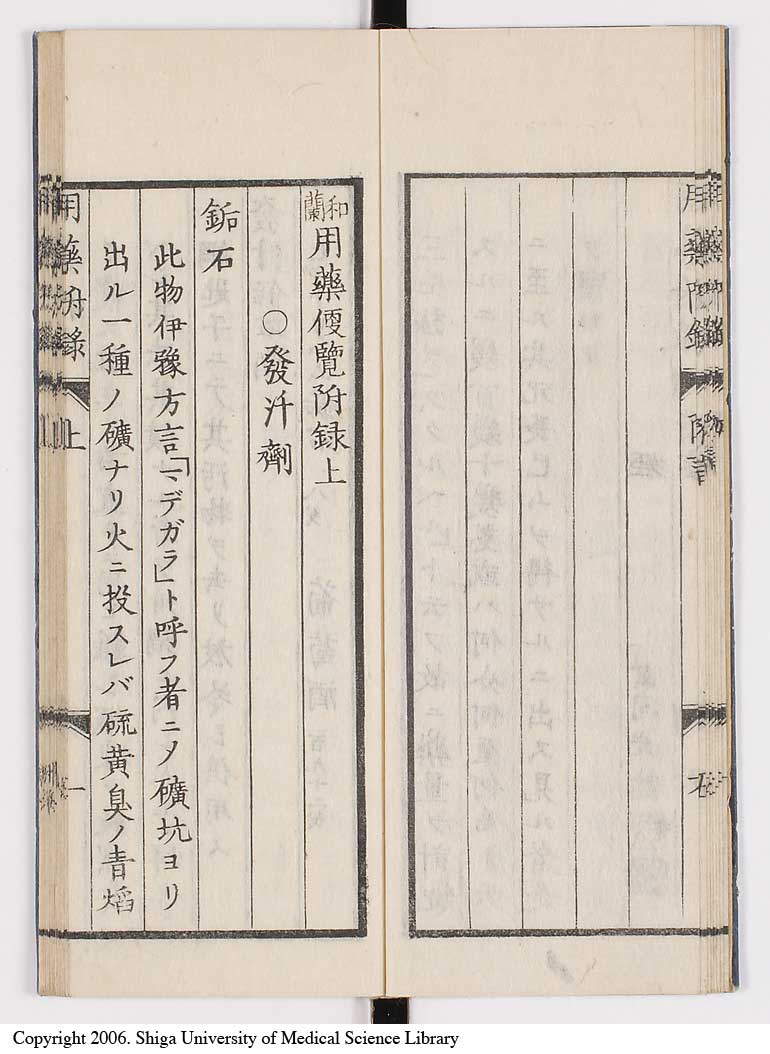 和蘭用藥便覽附録上
〇發汗劑
鉐石
此物伊豫方言「マデガラ」ト呼フ者ニメ礦坑ヨリ
出ル一種ノ礦ナリ火ニ投スレバ硫黄臭ノ青熖
用藥附録 上 一
Copyright 2006. Shiga University of Medical Science Library